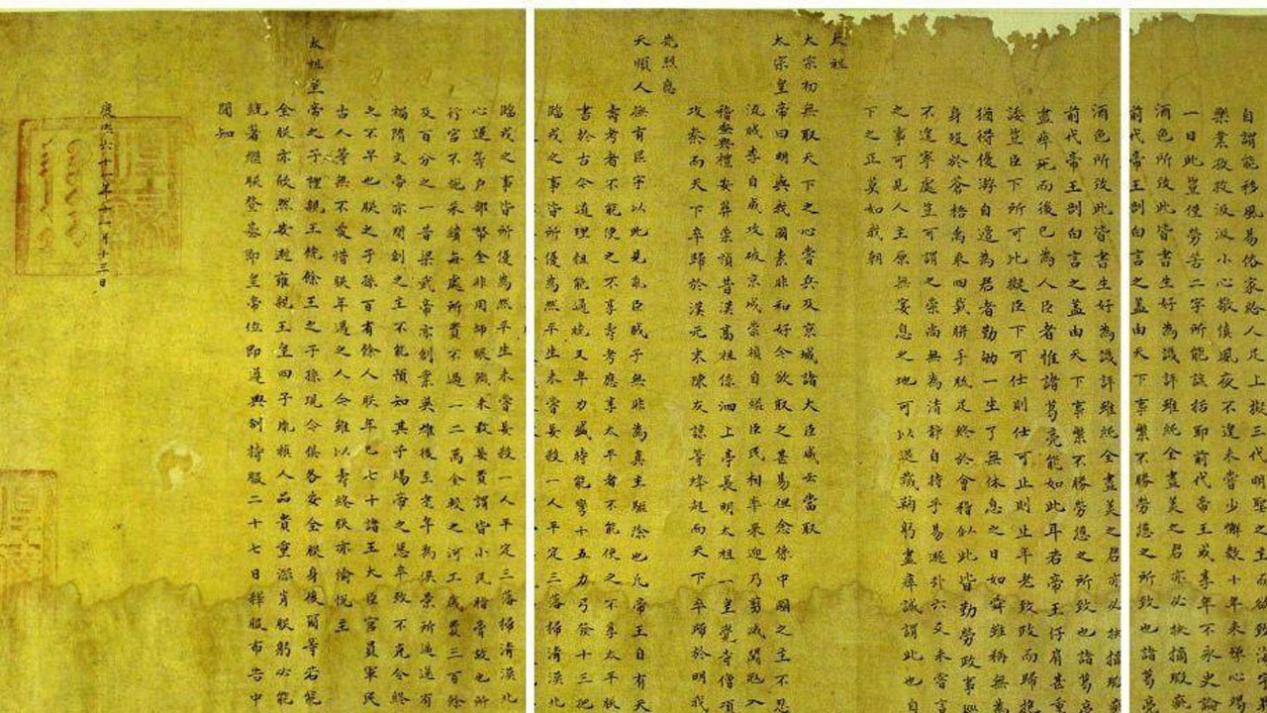 自謂能移風易俗家給人足上擬三代明聖之主而欲致海宇昇
樂業孜孜汲汲小心敬慎夙夜不遑未嘗少懈數十年來殫心竭
一日此豈僅勞苦二字所能該括耶前代帝王或享年不永史論
酒色所致此皆書生好為譏評雖純全盡美之君亦必抉摘瑕疵
前代帝王剖白言之蓋由天下事繁不勝勞憊之所致也諸葛亮
酒色所致此皆書生好為譏評雖純全盡美之君亦必抉摘瑕疵
前代帝王剖白言之蓋由天下事繁不勝勞憊之所致也諸葛亮
盡瘁死而後已為人臣者惟諸葛亮能如此耳若帝王仔肩甚重
諉豈臣下所可比擬臣下可仕則仕可止則止年老致政而歸抱
猶得優游自適為君者勤劬一生了無休息之日如舜雖稱無為
身歿於蒼梧禹乘四載胼手胝足終於會稽似此皆勤勞政事巡
不遑寧處豈可謂之崇尚無為清靜自持乎易遯卦六爻未嘗言
之事可見人主原無宴息之地可以退藏鞠躬盡瘁誠謂此也自
下之正莫如我朝
太祖
太宗初無取天下之心嘗兵及京城諸大臣咸云當取
太宗皇帝曰明與我國素非和好今欲取之甚易但念係中國之主不忍
流賊李自成攻破京城崇禎自縊臣民相率來迎乃剪滅闖寇入
稽查典禮安葬崇禎昔漢高祖係泗上亭長明太祖一皇覺寺僧項
攻秦而天下卒歸於漢元末陳友諒等蜂起而天下卒歸於明我
先烈應
天順人撫有區宇以此見亂臣賊子無非為真主驅除也凡帝王自有天
壽考者不能使之不享壽考應享太平者不能使之不享太平朕
書於古今道理粗能通曉又年力盛時能彎十五力弓發十三把
臨戎之事皆所優為然平生未嘗妄殺一人平定三藩掃清漠北
臨戎之事皆所優為然平生未嘗妄殺一人平定三藩掃清漠北
心運籌戶部帑金非用師賑饑未敢妄費謂皆小民脂膏故也所
行宮不施采繢每處所費不過一二萬金較之河工歲費三百餘
及百分之一昔梁武帝亦創業英雄後至耄年為侯景所逼遂有
禍隋文帝亦開創之主不能預知其子煬帝之惡卒致不克令終
之不早也朕之子孫百有餘人朕年已七十諸王大臣官員軍民
古人等無不愛惜朕年邁之人今雖以壽終朕亦愉悅至
太祖皇帝之子禮親王饒餘王之子孫現今俱各安全朕身後爾等若能
全朕亦欣然安逝雍親王皇四子胤禛人品貴重深肖朕躬必能
統著繼朕登基即皇帝位即遵輿制持服二十七日釋服布告中
聞知
康熙六十一年十一月十三日